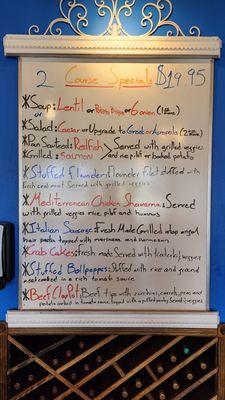 2 Course Specials $19.95
*Soup: Lentil or Potato Bisque or 6 onion
or
*Salad: Caesar or Upgrade to Greek or Arugula
*Pan Sauteed: Redfish Served with grilled veggies
*Grilled: Salmon and rice pilaf or baked potato
*Stuffed flounder: flounder filet stuffed with
crab meat Served with grilled veggies
*Mediterranean Chicken Shawarma: Served
with grilled veggies rice pilaf and hummus
*Italian Sausage: Fresh Made Grilled atop angel
hair pasta topped with marinara and parmesan
*Crab Cakes: fresh made Served with veggies
*Stuffed Bellpeppers: Stuffed with rice and ground
meat cooked in a rich tomato sauce
*Beef Clarlot: Beef tips with zucchini, carrots, peas and
potato cooked in tomato sauce topped with a puffed pastry Served w/ veggies